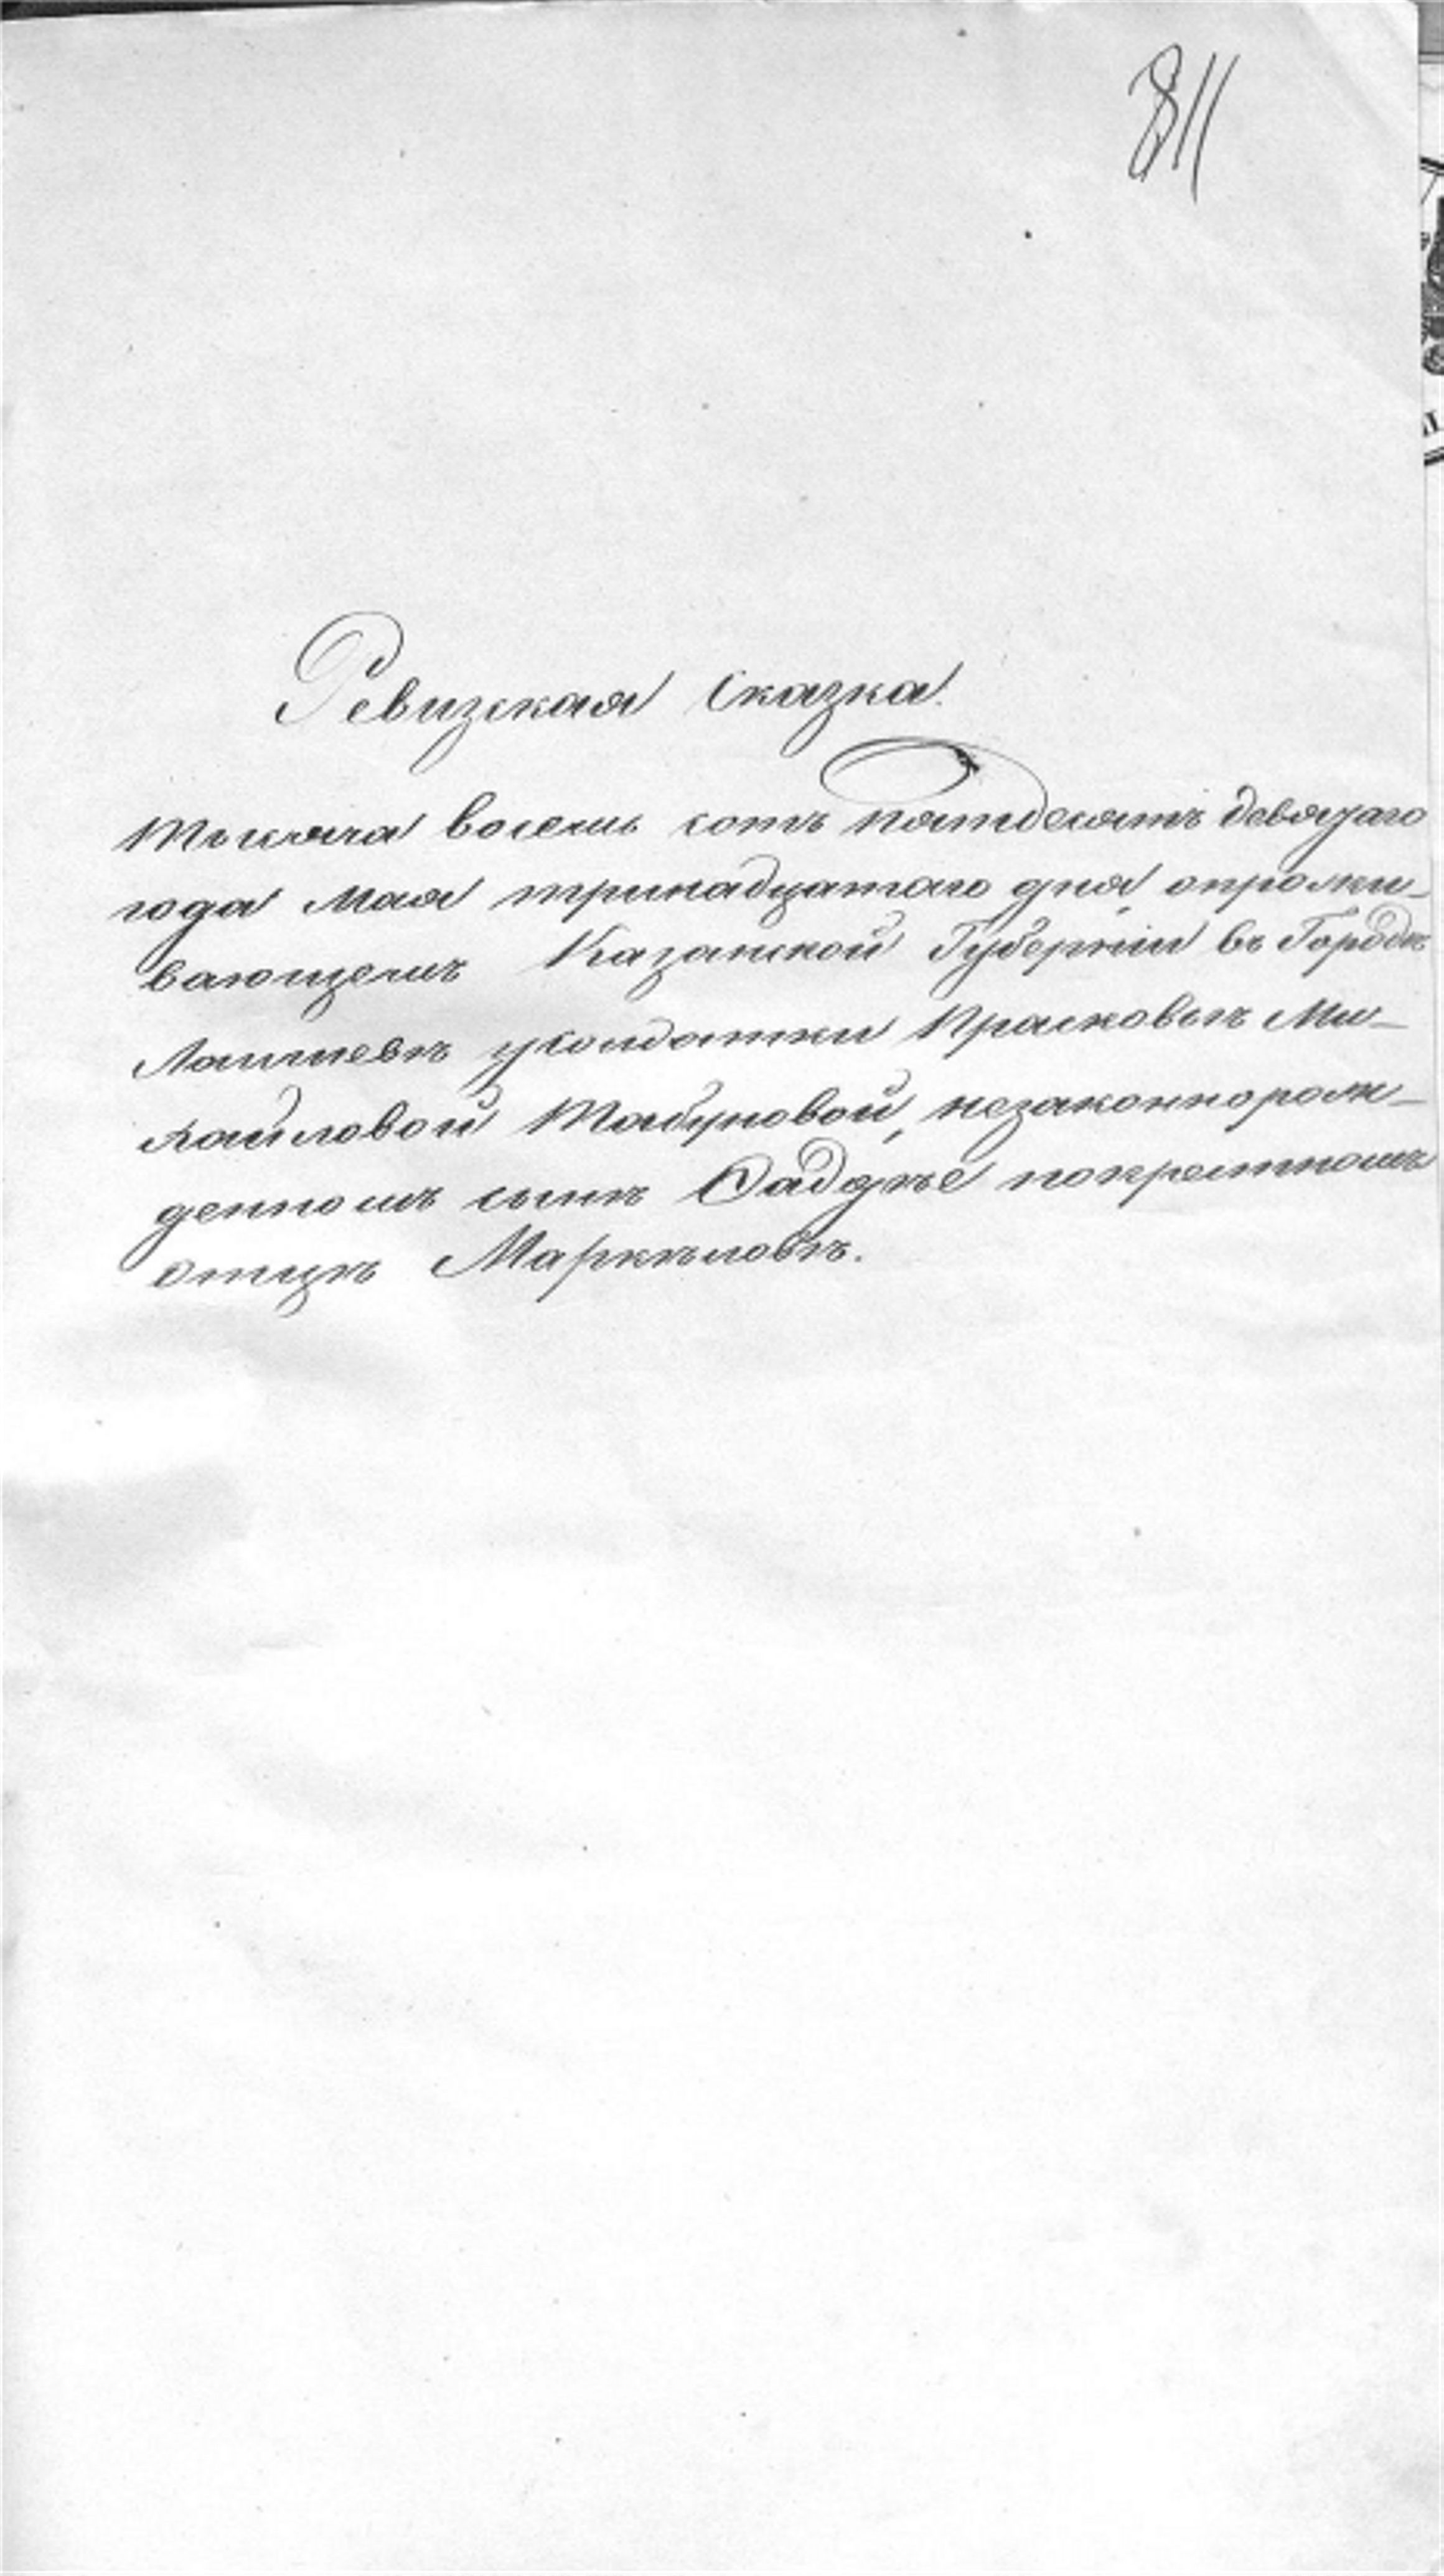 811
Ревизская Сказка.
Тысяча восемь сотъ пятдесятъ девятаго
года Мая тринадцатаго дня, опрожи-
вающемъ Казанской Губерніи въ Городѣ
Лаишевѣ усолдатки Прасковьѣ Ми-
хайловой Табуновой, незаконнорож-
денномъ сынѣ Фадѣѣ покрестномъ
отцѣ Маркѣловѣ.